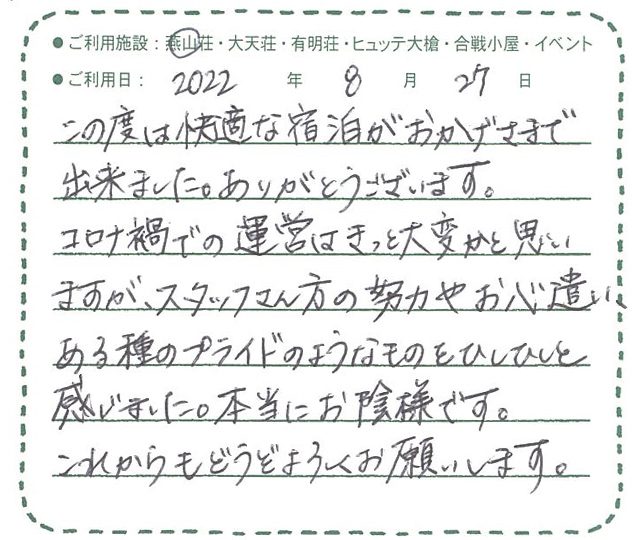 ●ご利用施設：燕山荘・大天荘・有明荘・ヒュッテ大槍・合戦小屋・イベント
●ご利用日：2022年8月27日
この度は快適な宿泊がおかげさまで
出来ました。ありがとうございます。
コロナ禍での運営はきっと大変かと思い
ますが、スタッフさん方の努力やお心遣い、
ある種のプライドのようなものをひしひしと
感じました。本当にお陰様です。
これからもどうぞよろしくお願いします。